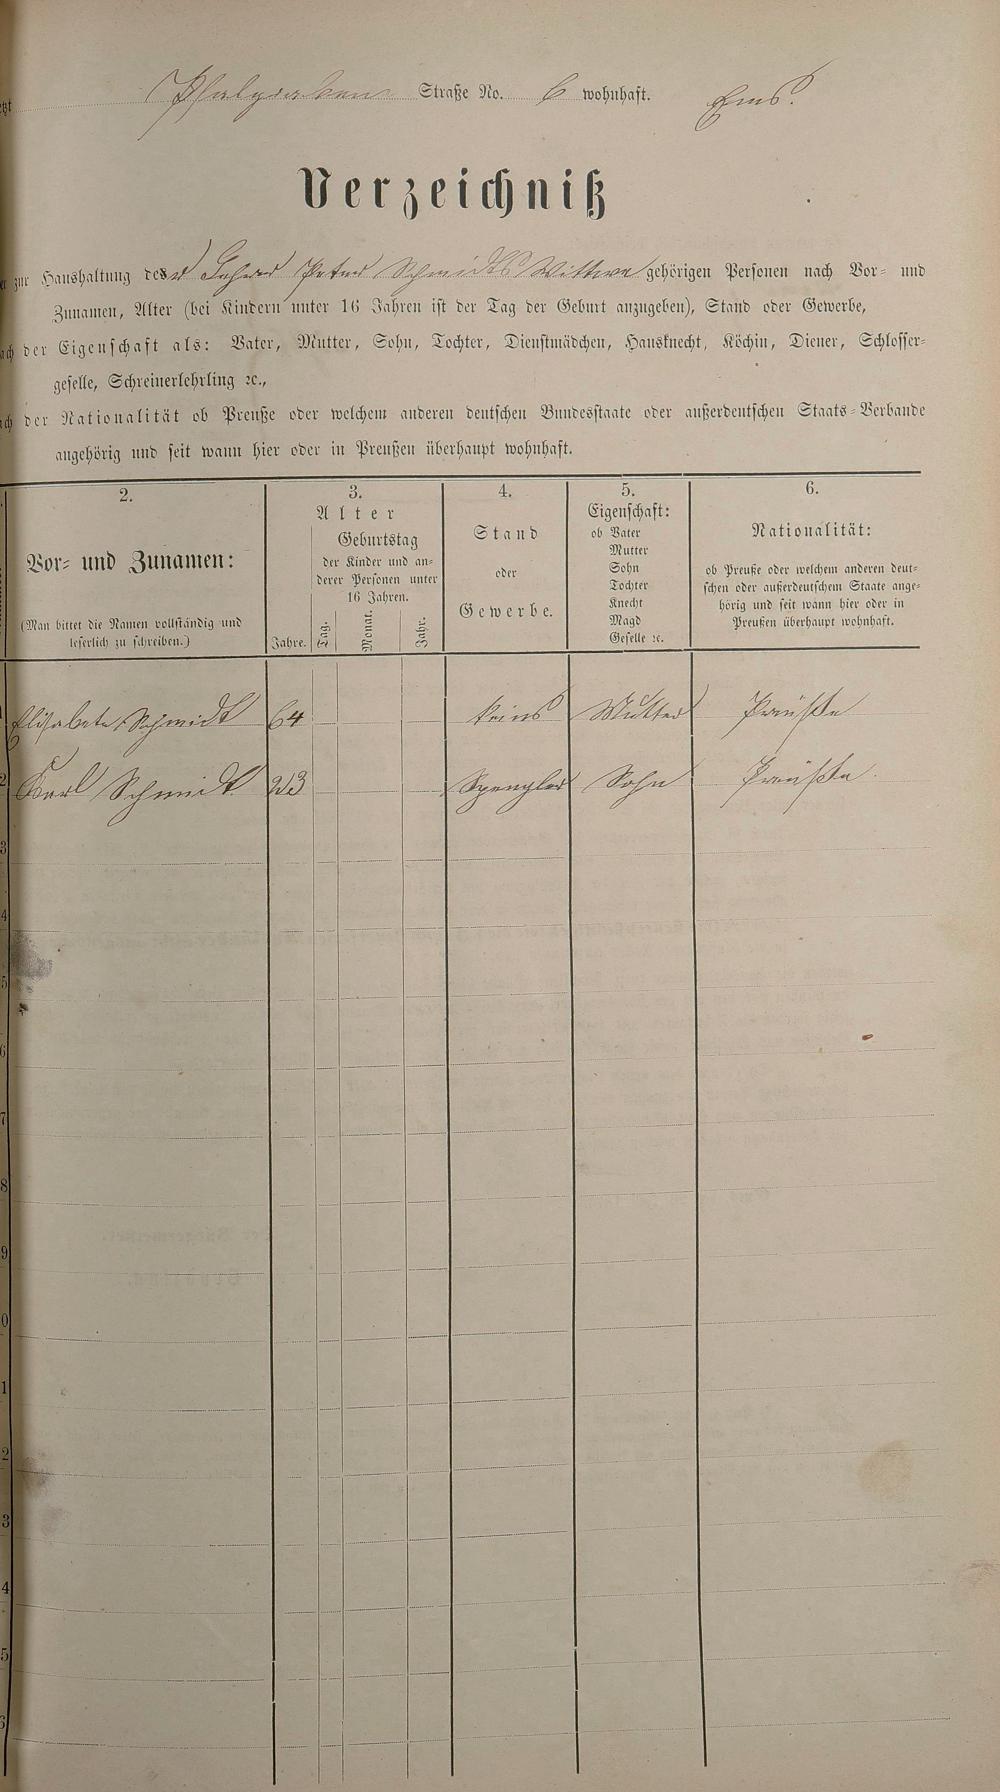 Pfalzgraben Straße No. 6 wohnhaft. Ems.
Verzeichniß
zur Haushaltung der Lehrer Peter Schmidts Wittwe gehörigen Personen nach Vor- und
Zunamen, Alter (bei Kindern unter 16 Jahren ist der Tag der Geburt anzugeben), Stand oder Gewerbe,
der Eigenschaft als: Vater, Mutter, Sohn, Tochter, Dienstmädchen, Hausknecht, Köchin, Diener, Schlosser-
geselle, Schreinerlehrling ꝛc.,
der Nationalität ob Preuße oder welchem anderen deutschen Bundesstaate oder außerdeutschen Staats-Verbande
angehörig und seit wann hier oder in Preußen überhaupt wohnhaft.
2.
Vor- und Zunamen:
(Man bittet die Namen vollständig und
leserlich zu schreiben.)
3.
Alter
Geburtstag
der Kinder und an-
derer Personen unter
16 Jahren.
Jahre.
Tag.
Monat.
Jahr.
4.
Stand
oder
Gewerbe.
5.
Eigenschaft:
ob Vater
Mutter
Sohn
Tochter
Knecht
Magd
Geselle ꝛc.
6.
Nationalität:
ob Preuße oder welchem anderen deut-
schen oder außerdeutschem Staate ange-
hörig und seit wann hier oder in
Preußen überhaupt wohnhaft.
Elisabeta Schmidt 64 keins Mutter Preußte
2 Karl Schmidt 23 Spengler Sohn Preußte
3
4
5
6
7
8
9
0
1
2
3
4
5
6